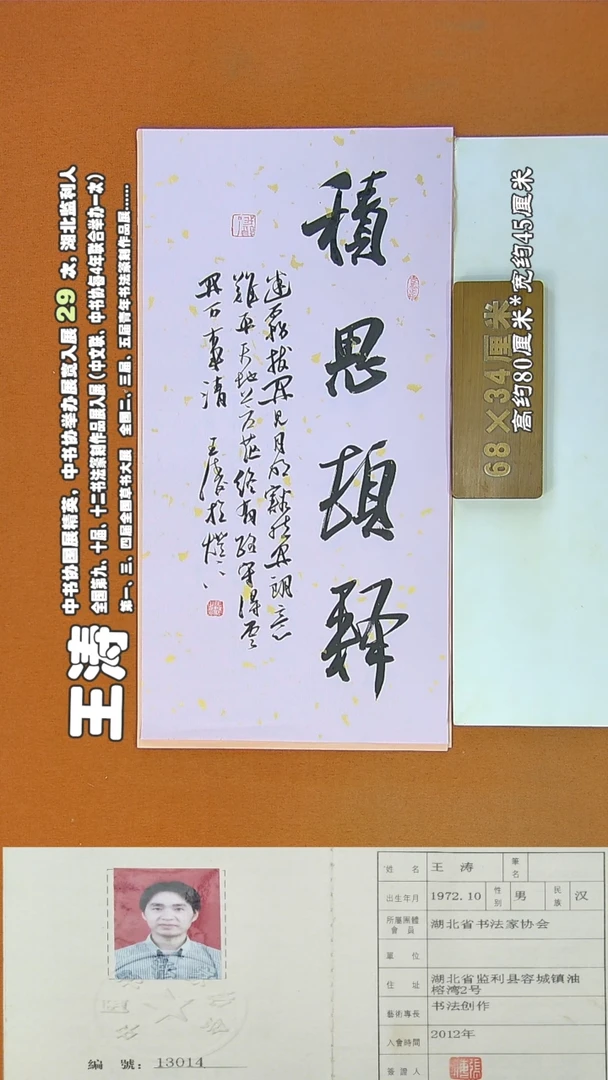 王涛
中书协国展精英，中书协举办展赛入展 29 次，湖北监利人
全国第九、十届、十二书法篆刻作品展入展（中文联、中书协每4年联合举办一次）
第一、三、四届全国草书大展 全国二、三届、五届青年书法篆刻作品展......
積思頓释
迷霧拔開見月明豁然開朗意
難平天地茫茫終有路守得雲
開万事清 王濤
68×34厘米
高约80厘米*宽约45厘米
姓名 王 涛 筆名
出生年月 1972.10 性别 男 民族 汉
所屬團體會員 湖北省书法家协会
單位
住址 湖北省监利县容城镇油榕湾2号
藝術專長 书法创作
入會時間 2012年
簽證人
編 號：13014